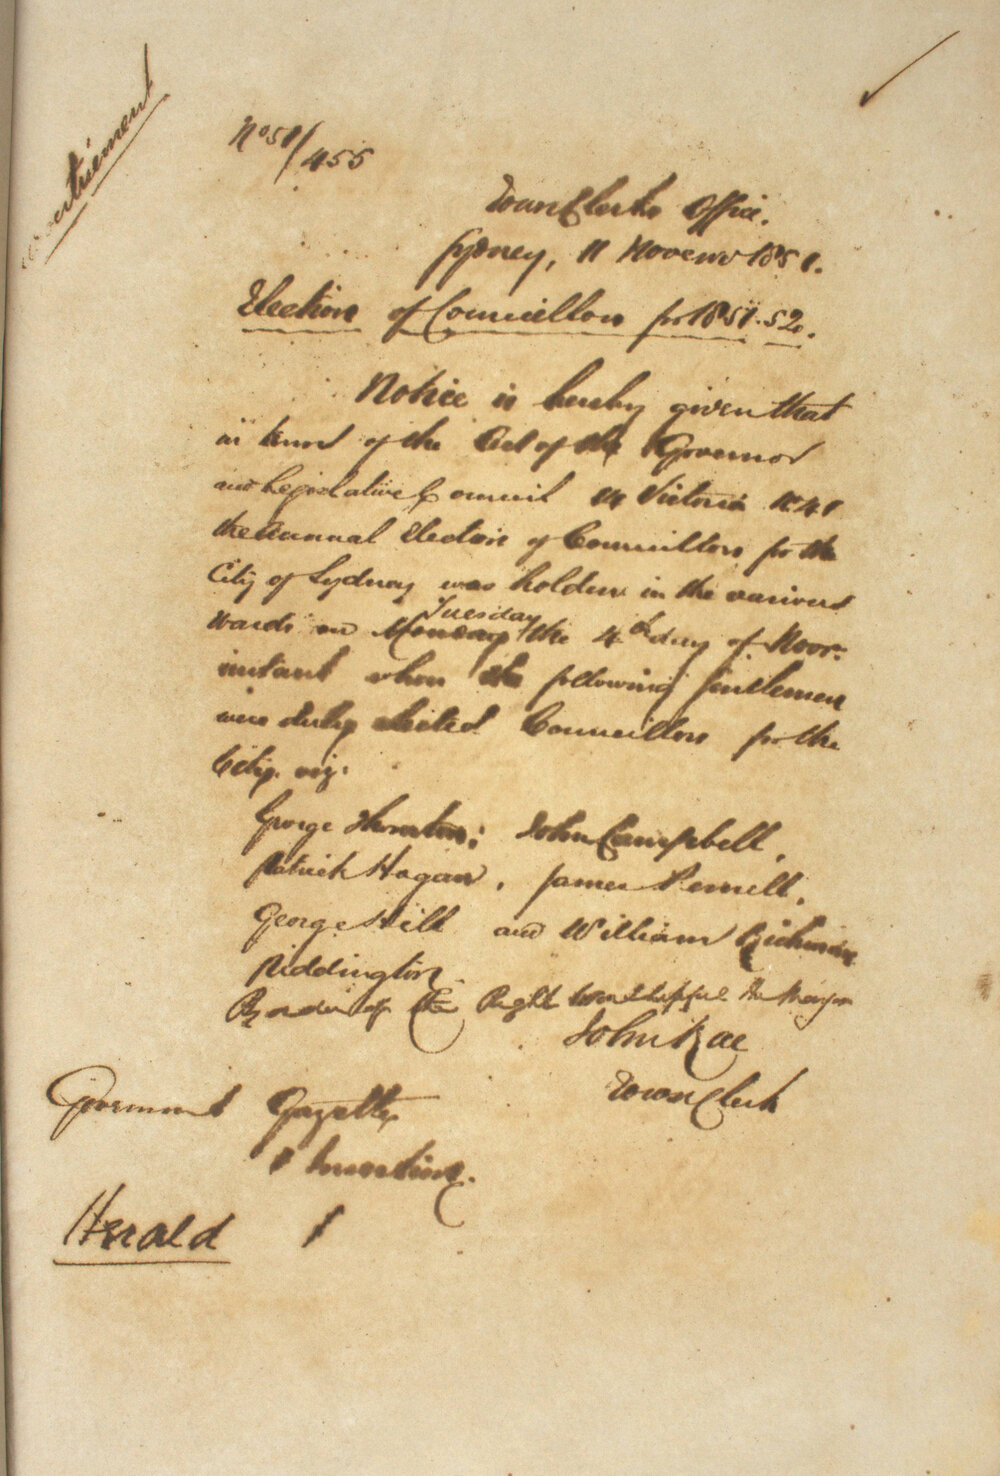 Advertisement
No 51/455
Town Clerks Office.
Sydney, 11 Novemr 1851.
Election of Councillors for 1851.52.
Notice is hereby given that
in terms of the Act of the Governor
and Legislative Council 14 Victoria No 41
the Annual Election of Councillors for the
City of Sydney was holden in the various
Tuesday
Wards on Monday the 4th day of Novr.
instant when the following Gentlemen
were duly elected Councillors for the
City. viz.
George Thornton; John Campbell,
Patrick Hogan, James Pemell,
George Hill and William Richman
Piddington.
By order of the Right Worshipful the Mayor
John Rae
Town Clerk
Government Gazette
1 Insertion.
Herald 1